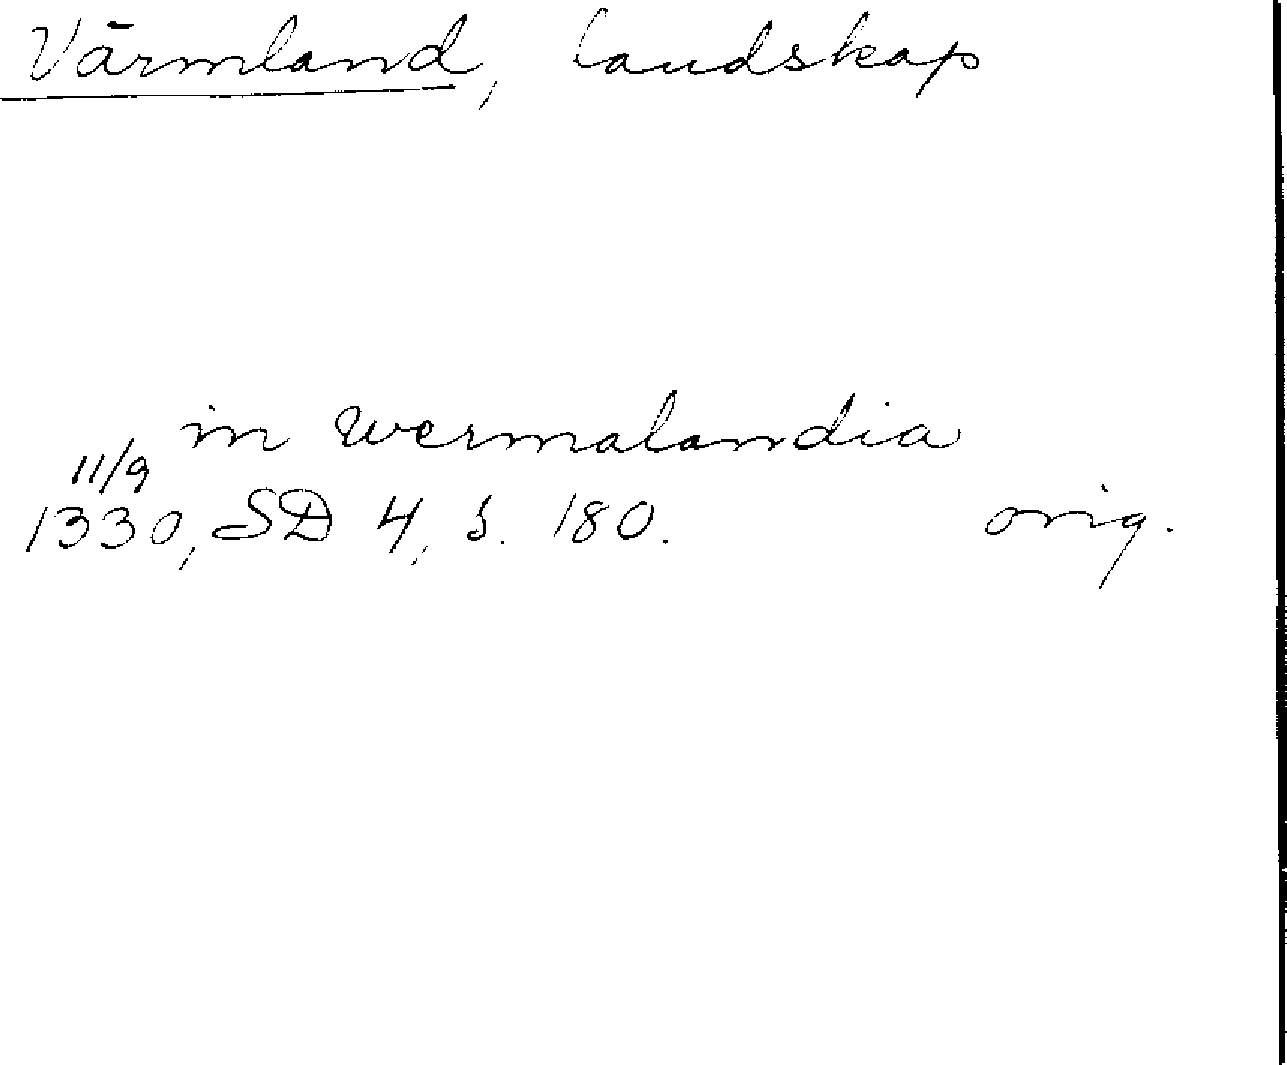 Värmland, landskap
in wermalandia
11/9
1330, SD 4, s. 180. orig.